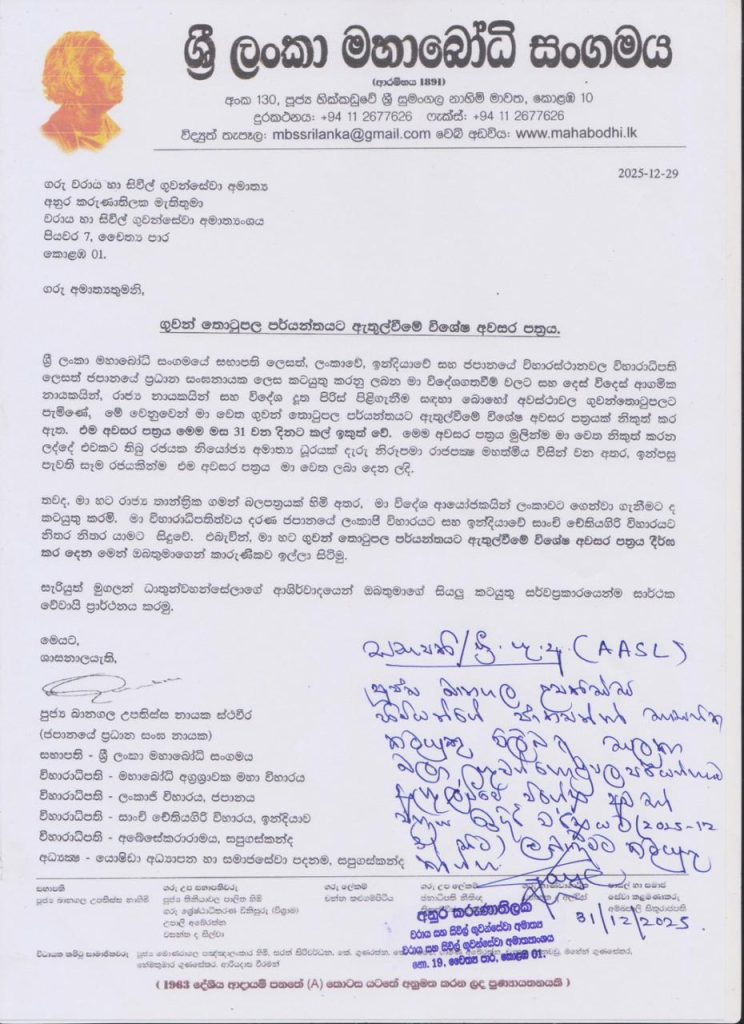 ශ්‍රී ලංකා මහාබෝධි සංගමය
(ආරම්භය 1891)
අංක 130, පූජ්‍ය හික්කඩුවේ ශ්‍රී සුමංගල නාහිමි මාවත, කොළඹ 10
දුරකථනය: +94 11 2677626 ෆැක්ස්: +94 11 2677626
විද්‍යුත් තැපෑල: mbssrilanka@gmail.com වෙබ් අඩවිය: www.mahabodhi.lk
2025-12-29
ගරු වරාය හා සිවිල් ගුවන්සේවා අමාත්‍ය
අනුර කරුණාතිලක මැතිතුමා
වරාය හා සිවිල් ගුවන්සේවා අමාත්‍යංශය
පියවර 7, චෛත්‍ය පාර
කොළඹ 01.
ගරු අමාත්‍යතුමනි,
ගුවන් තොටුපල පර්යන්තයට ඇතුල්වීමේ විශේෂ අවසර පත්‍රය.
ශ්‍රී ලංකා මහාබෝධි සංගමයේ සභාපති ලෙසත්, ලංකාවේ, ඉන්දියාවේ සහ ජපානයේ විහාරස්ථානවල විහාරාධිපති
ලෙසත් ජපානයේ ප්‍රධාන සංඝනායක ලෙස කටයුතු කරනු ලබන මා විදේශගතවීම් වලට සහ දෙස් විදෙස් ආගමික
නායකයින්, රාජ්‍ය නායකයින් සහ විදේශ දූත පිරිස් පිළිගැනීම සඳහා බොහෝ අවස්ථාවල ගුවන්තොටුපලට
පැමිණේ, මේ වෙනුවෙන් මා වෙත ගුවන් තොටුපල පර්යන්තයට ඇතුල්වීමේ විශේෂ අවසර පත්‍රයක් නිකුත් කර
ඇත. එම අවසර පත්‍රය මෙම මස 31 වන දිනට කල් ඉකුත් වේ. මෙම අවසර පත්‍රය මුලින්ම මා වෙත නිකුත් කරන
ලද්දේ එවකට තිබු රජයක නියෝජ්‍ය අමාත්‍ය ධූරයක් දැරු නිරූපමා රාජපක්‍ෂ මහත්මිය විසින් වන අතර, ඉන්පසු
පැවති සෑම රජයකින්ම එම අවසර පත්‍රය මා වෙත ලබා දෙන ලදි.
තවද, මා හට රාජ්‍ය තාන්ත්‍රික ගමන් බලපත්‍රයක් හිමි අතර, මා විදේශ ආයෝජකයින් ලංකාවට ගෙන්වා ගැනීමට ද
කටයුතු කරමි. මා විහාරාධිපතිත්වය දරණ ජපානයේ ලංකාජි විහාරයට සහ ඉන්දියාවේ සාංචි චේතියගිරි විහාරයට
නිතර නිතර යාමට සිදුවේ. එබැවින්, මා හට ගුවන් තොටුපල පර්යන්තයට ඇතුල්වීමේ විශේෂ අවසර පත්‍රය දීර්ඝ
කර දෙන මෙන් ඔබතුමාගෙන් කාරුණිකව ඉල්ලා සිටිමු.
සැරියුත් මුගලන් ධාතූන්වහන්සේලාගේ ආශිර්වාදයෙන් ඔබතුමාගේ සියලු කටයුතු සර්වප්‍රකාරයෙන්ම සාර්ථක
වේවායි ප්‍රාර්ථනය කරමු.
මෙයට,
ශාසනාලයැති,
පූජ්‍ය බානගල උපතිස්ස නායක ස්ථවිර
(ජපානයේ ප්‍රධාන සංඝ නායක)
සභාපති - ශ්‍රී ලංකා මහාබෝධි සංගමය
විහාරාධිපති - මහාබෝධි අග්‍රශ්‍රාවක මහා විහාරය
විහාරාධිපති - ලංකාජි විහාරය, ජපානය
විහාරාධිපති - සාංචි චේතියගිරි විහාරය, ඉන්දියාව
විහාරාධිපති - අබේසේකරාරාමය, සපුගස්කන්ද
අධ්‍යක්‍ෂ - යොෂිඩා අධ්‍යාපන හා සමාජසේවා පදනම, සපුගස්කන්ද
සභාපති/ශ්‍රී.ල.ගු (AASL)
පූජ්‍ය බානගල උපතිස්ස
හිමියන්ගේ
කටයුතු පිලිබඳ සලකා
බලා ගුවන්තොටුපල පර්යන්තයට
ඇතුල්වීමේ විශේෂ අවසර
(2025-12
කටයුතු
කරන්න.
31/12/2025.
අනුර කරුණාතිලක
වරාය සහ සිවිල් ගුවන්සේවා අමාත්‍ය
වරාය සහ සිවිල් ගුවන්සේවා අමාත්‍යාංශය
නො. 19, චෛත්‍ය පාර, කොළඹ 01.
සභාපති
පූජ්‍ය බානගල උපතිස්ස නාහිමි
ගරු උප සභාපතිවරු
ගරු ශ්‍රේෂ්ඨාධිකරණ විනිසුරු (විශ්‍රාම)
උපාලි අබේරත්න
වසන්ත ද සිල්වා
ගරු ලේකම්
ගරු උප ලේකම්
ජනාධිපති නීතිඥ
සේවා කළමණාකරු
විධායක කමිටු සාමාජිකවරු
( 1963 දේශීය ආදායම් පනතේ (A) කොටස යටතේ අනුමත කරන ලද පුණ්‍යායතනයකි )